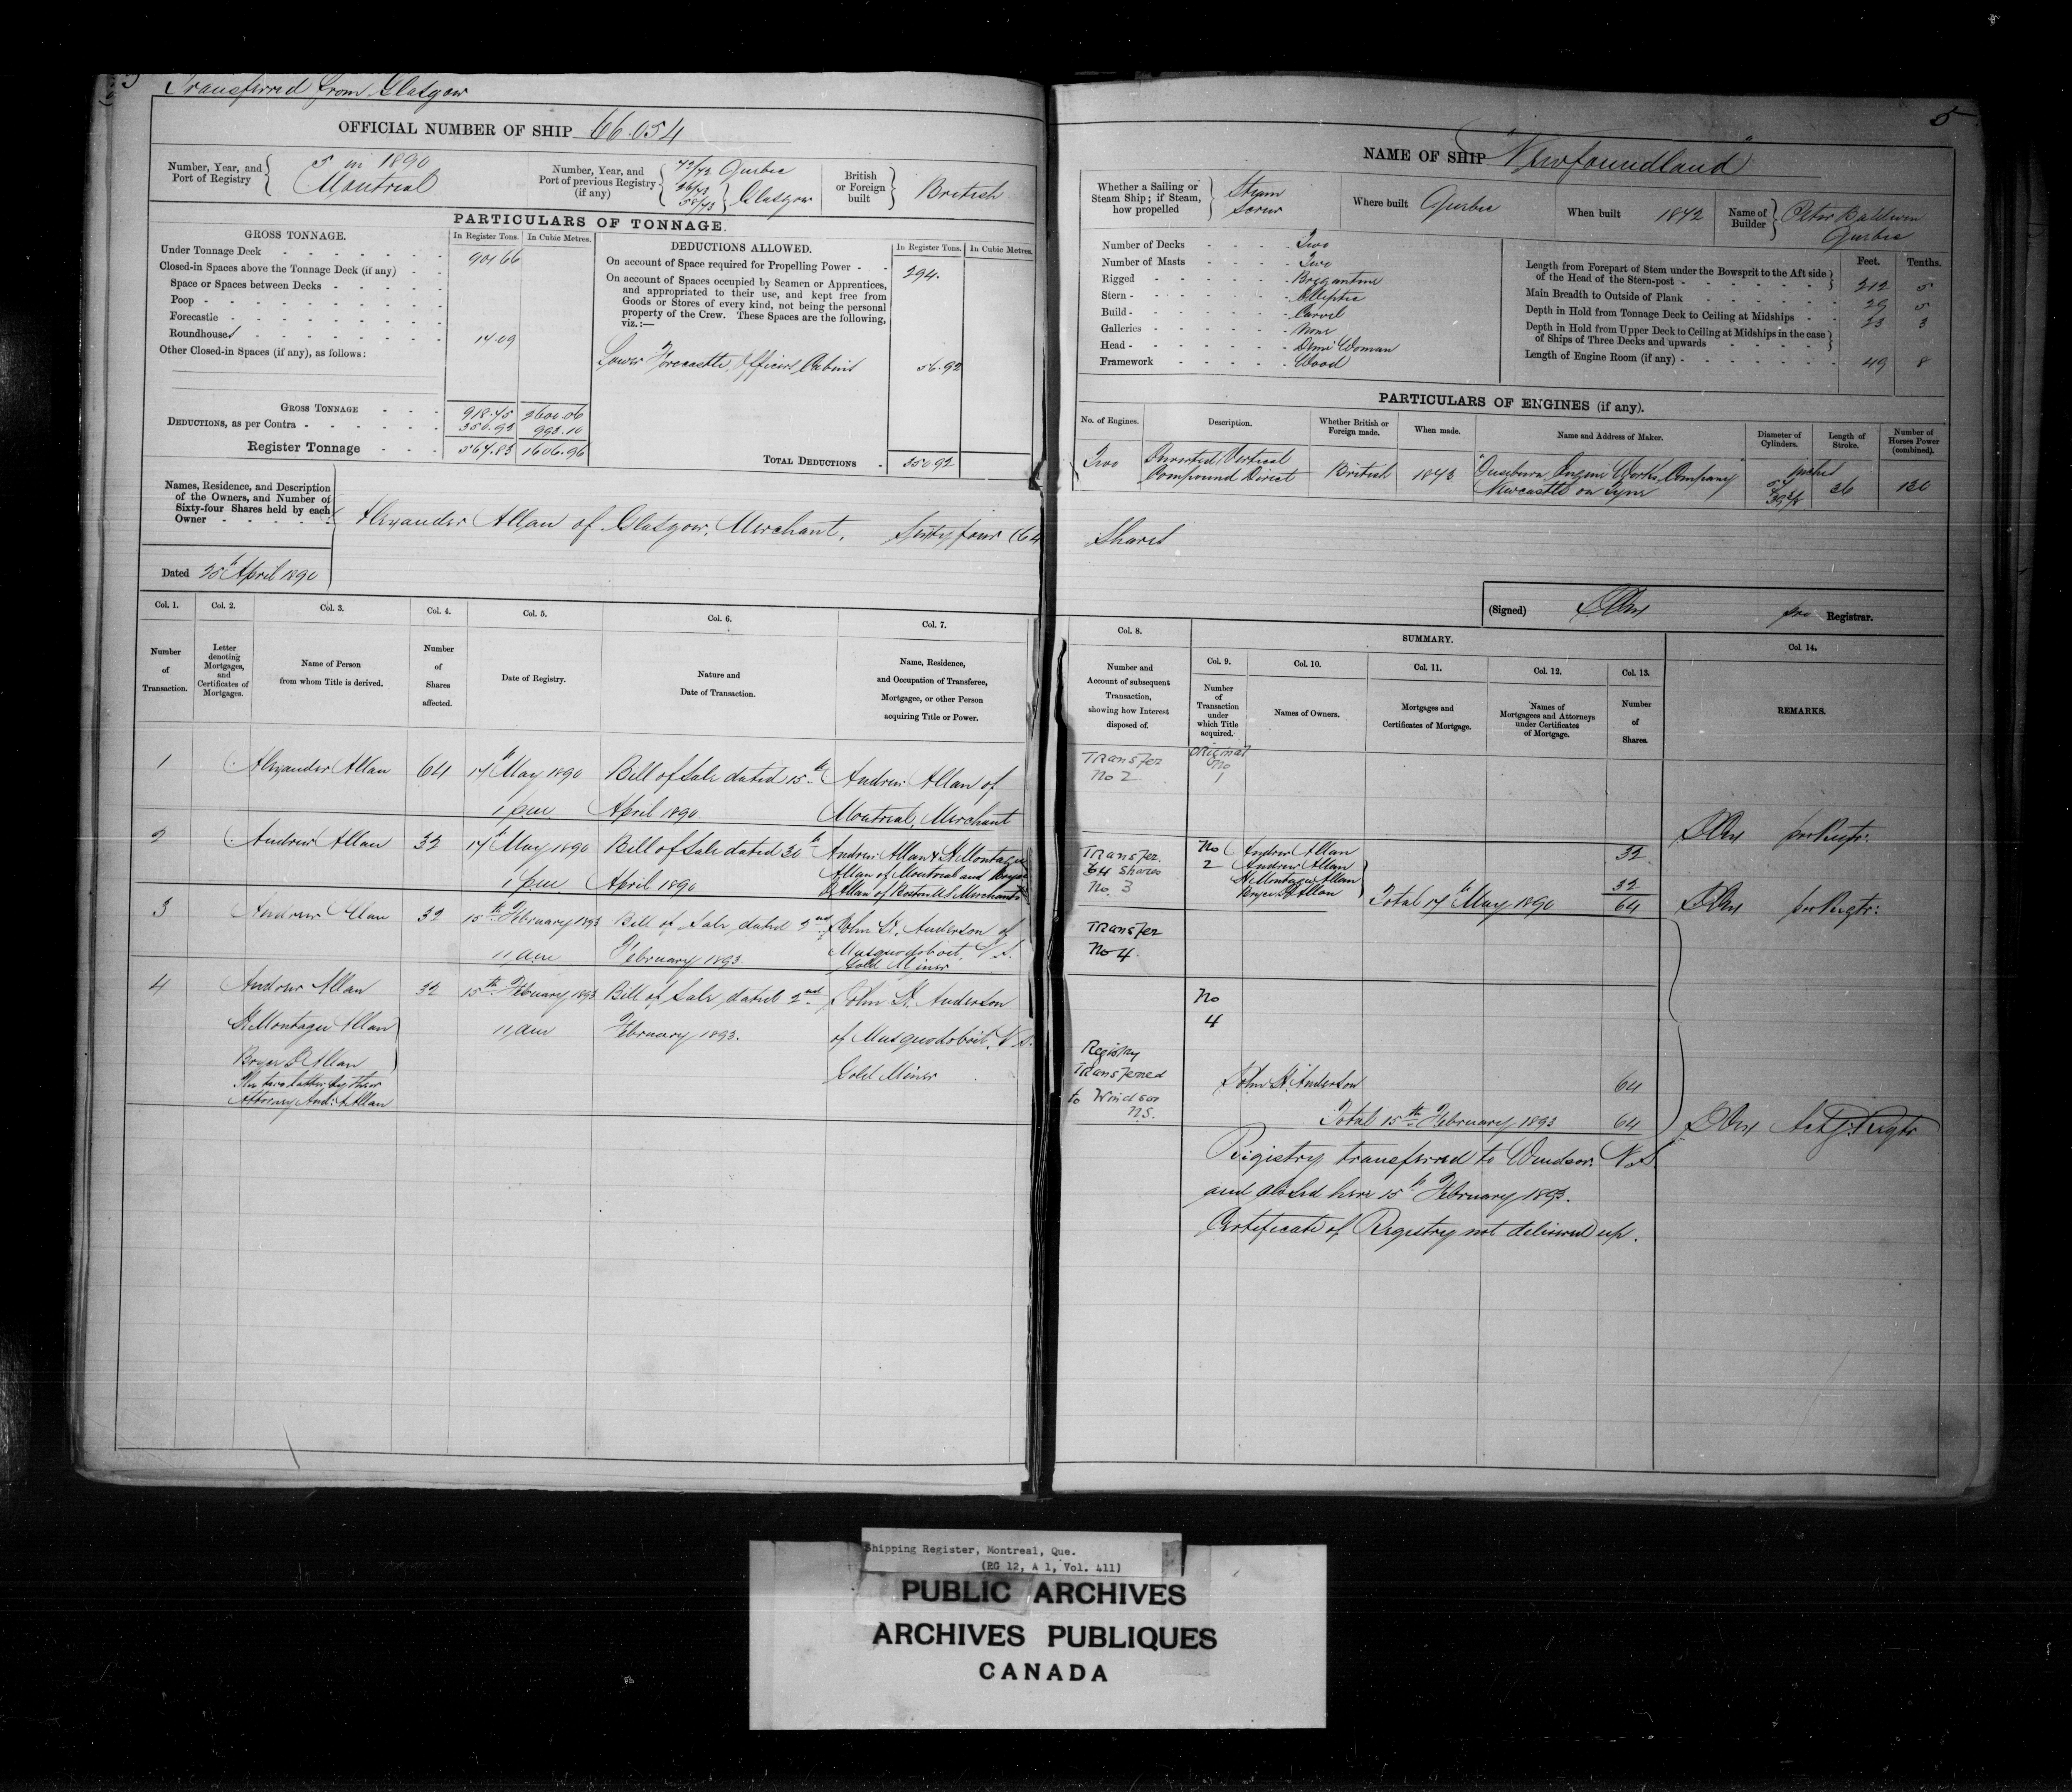 Transferred from Glasgow
OFFICIAL NUMBER OF SHIP 66.054
Number, Year, and Port of Registry
5 in 1890
Montreal
Number, Year, and Port of previous Registry (if any)
Quebec
Glasgow
British or Foreign built
British
PARTICULARS OF TONNAGE.
GROSS TONNAGE.
In Register Tons.
In Cubic Metres.
Under Tonnage Deck
Closed-in Spaces above the Tonnage Deck (if any)
Space or Spaces between Decks
Poop
Forecastle
Roundhouses 14.09
Other Closed-in Spaces (if any), as follows:
GROSS TONNAGE 918.75 2600.06
DEDUCTIONS, as per Contra 350.92 993.10
Register Tonnage 567.83 1606.96
DEDUCTIONS ALLOWED.
In Register Tons.
In Cubic Metres.
On account of Space required for Propelling Power 294.
On account of Spaces occupied by Seamen or Apprentices,
and appropriated to their use, and kept free from
Goods or Stores of every kind, not being the personal
property of the Crew. These Spaces are the following,
viz.:—
Lower Forecastle, Officers Cabins 56.92
TOTAL DEDUCTIONS 350 92
Names, Residence, and Description
of the Owners, and Number of
Sixty-four Shares held by each
Owner
Alexander Allan of Glasgow, Merchant, Sixty four (64
Shares
Dated 25th April 1890
5
NAME OF SHIP "Newfoundland"
Whether a Sailing or Steam Ship; if Steam, how propelled
Steam
Screw
Where built Quebec
When built 1872
Name of Builder
Peter Baldwin
Quebec
Number of Decks Two
Number of Masts Two
Rigged Briggantine
Stern Elliptic
Build Carvel
Galleries None
Head Demi Woman
Framework Wood
Feet. Tenths.
Length from Forepart of Stem under the Bowsprit to the Aft side
of the Head of the Stern-post 212 5
Main Breadth to Outside of Plank 29 5
Depth in Hold from Tonnage Deck to Ceiling at Midships 23 3
Depth in Hold from Upper Deck to Ceiling at Midships in the case
of Ships of Three Decks and upwards
Length of Engine Room (if any) 49 8
PARTICULARS OF ENGINES (if any).
No. of Engines.
Description.
Whether British or Foreign made.
When made.
Name and Address of Maker.
Diameter of Cylinders.
Length of Stroke.
Number of Horses Power (combined).
Two
Inverted, Vertical
Compound Direct
British
1873
"Ouseburn Engine Works Company"
Newcastle on Tyne
inches
36
120
(Signed)
pro Registrar.
Col. 1. Col. 2. Col. 3. Col. 4. Col. 5. Col. 6. Col. 7.
Number of Transaction.
Letter denoting Mortgages, and Certificates of Mortgages.
Name of Person from whom Title is derived.
Number of Shares affected.
Date of Registry.
Nature and Date of Transaction.
Name, Residence, and Occupation of Transferee, Mortgagee, or other Person acquiring Title or Power.
Col. 8.
Number and Account of subsequent Transaction, showing how Interest disposed of.
SUMMARY.
Col. 9. Col. 10. Col. 11. Col. 12. Col. 13.
Number of Transaction under which Title acquired.
Names of Owners.
Mortgages and Certificates of Mortgage.
Names of Mortgagees and Attorneys under Certificates of Mortgage.
Number of Shares.
Col. 14.
REMARKS.
1 Alexander Allan 64 17th May 1890 Bill of Sale dated 15th Andrew Allan of
1 pm April 1890 Montreal, Merchant
Transfer
No 2
Original
No
1
pro Regtr:
2 Andrew Allan 32 17th May 1890 Bill of Sale dated 30th Andrew Allan & H. Montagu
1 pm April 1890 Allan of Montreal and Bryce
Allan of Boston U.S. Merchants
Transfer
64 Shares
No. 3
No 2
Andrew Allan 32
Andrew Allan
H. Montagu Allan
Bryce J. Allan 32
Total 17th May 1890 64
pro Regtr:
3 Andrew Allan 32 15th February 1893 Bill of Sale dated 2nd John H. Anderson of
11 am February 1893 Musquodoboit, N.S.
Gold Miner
Transfer
No 4
4 Andrew Allan 32 15th February 1893 Bill of Sale, dated 2nd John H. Anderson
H. Montagu Allan 11 am February 1893. of Musquodoboit, N.S.
Bryce J. Allan Gold Miner
The two latter by their
Attorney And: A. Allan
Registry
Transferred
to Windsor
N.S.
No
4
John H. Anderson 64
Total 15th February 1893 64
Actg. Regtr
Registry transferred to Windsor. N.S.
and closed here 15th February 1893.
Certificate of Registry not delivered up.
Shipping Register, Montreal, Que.
(RG 12, A 1, Vol. 411)
PUBLIC ARCHIVES
ARCHIVES PUBLIQUES
CANADA